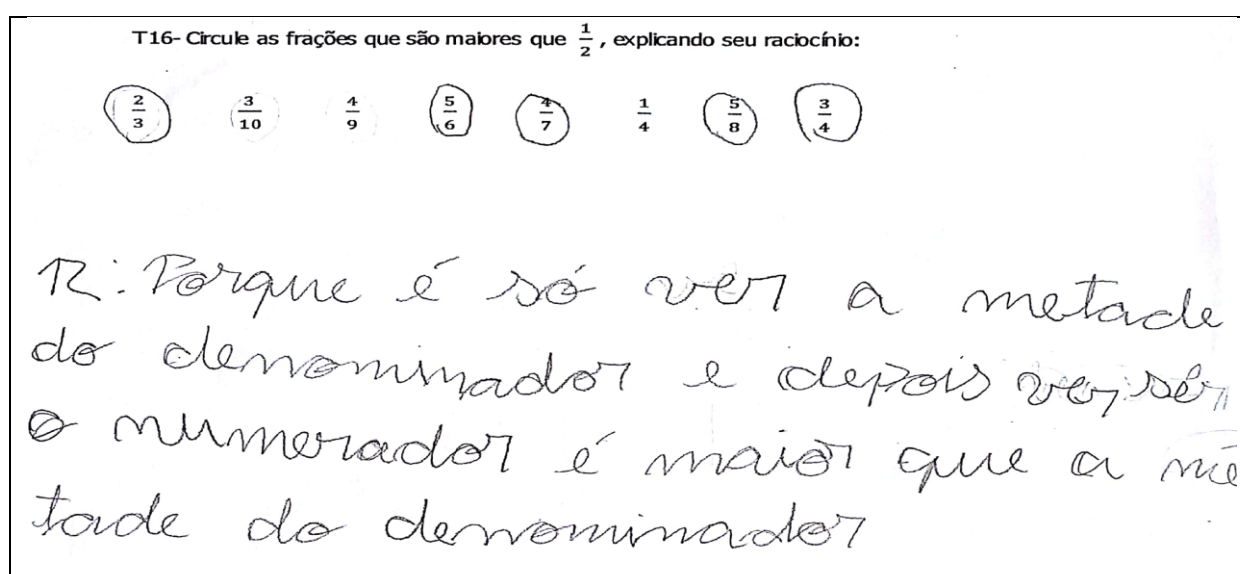 T16- Circule as frações que são maiores que 1/2 , explicando seu raciocínio:
2/3 3/10 4/9 5/6 4/7 1/4 5/8 3/4
R: Porque é só ver a metade
do denominador e depois ver sér
o numerador é maior que a me
tade do denominador